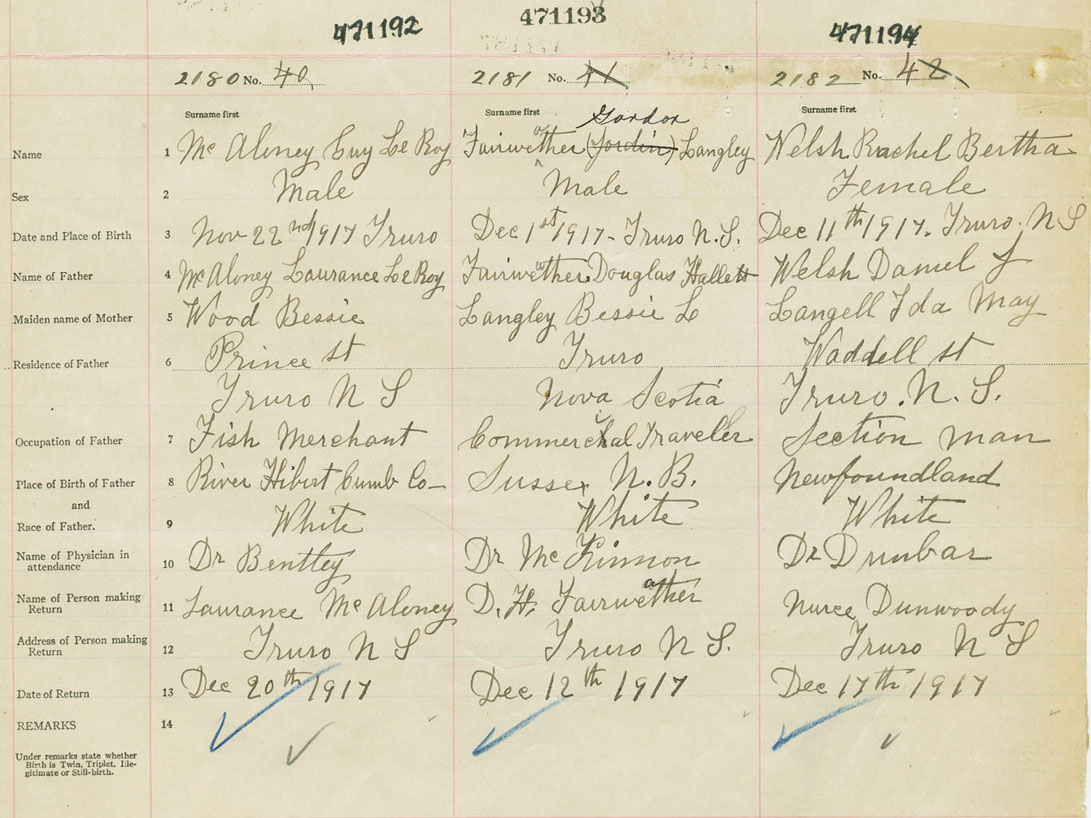 471192 471193 471194
2180 No. 40 2181 No. 41 2182 No. 42
Surname first Surname first Surname first
Gordon
Name 1 Mc Aloney Guy Le Roy Fairweather (Jordin) Langley Welsh Rachel Bertha
Sex 2 Male Male Female
Date and Place of Birth 3 Nov 22nd 1917 Truro Dec 1st 1917 - Truro N.S. Dec 11th 1917. Truro. N S
Name of Father 4 McAloney Laurance Le Roy Fairweather Douglas Hallett Welsh Daniel J
Maiden name of Mother 5 Wood Bessie Langley Bessie L Langell Ida May
Residence of Father 6 Prince St Truro Waddell st
Truro N S Nova Scotia Truro. N. S.
Occupation of Father 7 Fish Merchant Commercial Traveler Section man
Place of Birth of Father 8 River Hibert Cumb Co- Sussex N.B. Newfoundland
and
Race of Father. 9 White White White
Name of Physician in
attendance 10 Dr Bentley Dr McKinnon Dr Dunbar
Name of Person making
Return 11 Laurance McAloney D. H. Fairweather Nurce Dunwoody
Address of Person making
Return 12 Truro N S Truro N S. Truro N S
Date of Return 13 Dec 20th 1917 Dec 12th 1917 Dec 17th 1917
REMARKS 14
Under remarks state whether
Birth is Twin, Triplet, Ille-
gitimate or Still-birth.